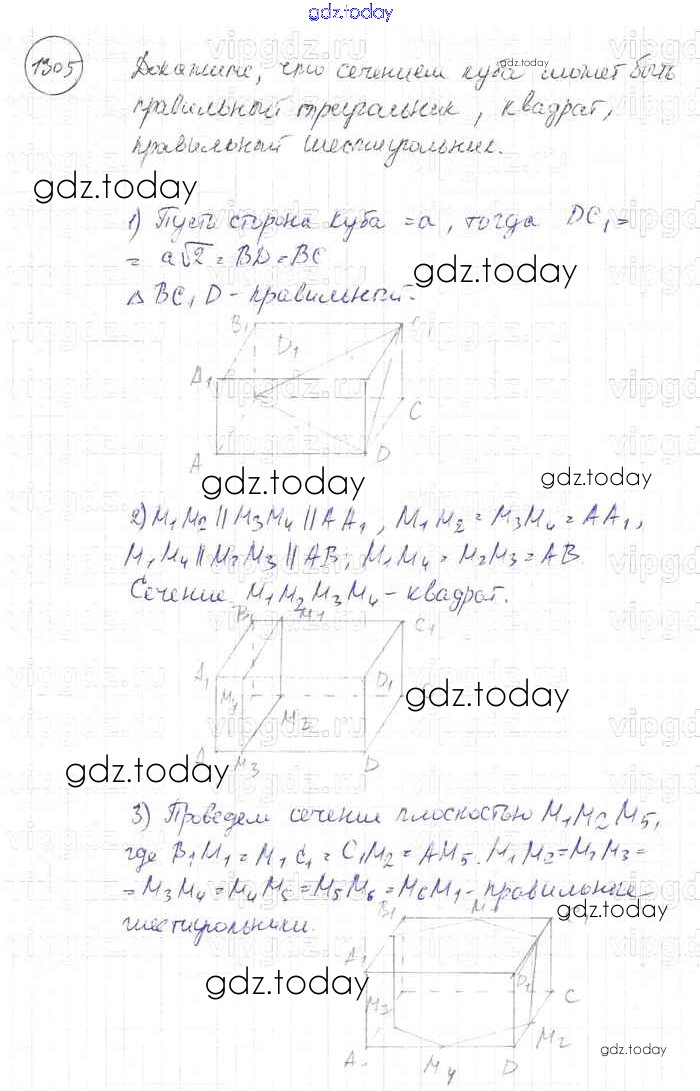 gdz.today
1305
Докажите, что сечением куба может быть
правильный треугольник, квадрат,
правильный шестиугольник.
gdz.today
gdz.today
1) Пусть сторона куба = a, тогда DC₁ =
= a√2 = BD = BC
Δ BC₁D - правильный.
gdz.today
B₁
D₁
A₁
C
A
D
gdz.today
gdz.today
2) M₁M₂ || M₃M₄ || AA₁, M₁M₂ = M₃M₄ = AA₁,
M₁M₄ || M₂M₃ || AB; M₁M₄ = M₂M₃ = AB.
Сечение M₁M₂M₃M₄ - квадрат.
B₁ M₁ C₁
A₁ D₁
M₄
gdz.today
M₂
A M₃ D
gdz.today
3) Проведем сечение плоскостью M₁M₂M₅,
где B₁M₁ = M₁C₁ = C₁M₂ = AM₅. M₁M₂ = M₂M₃ =
= M₃M₄ = M₄M₅ = M₅M₆ = M₆M₁ - правильные
шестиугольники.
gdz.today
B₁
A₁
D₁
gdz.today
M₃
C
M₂
A
M₄
D
gdz.today